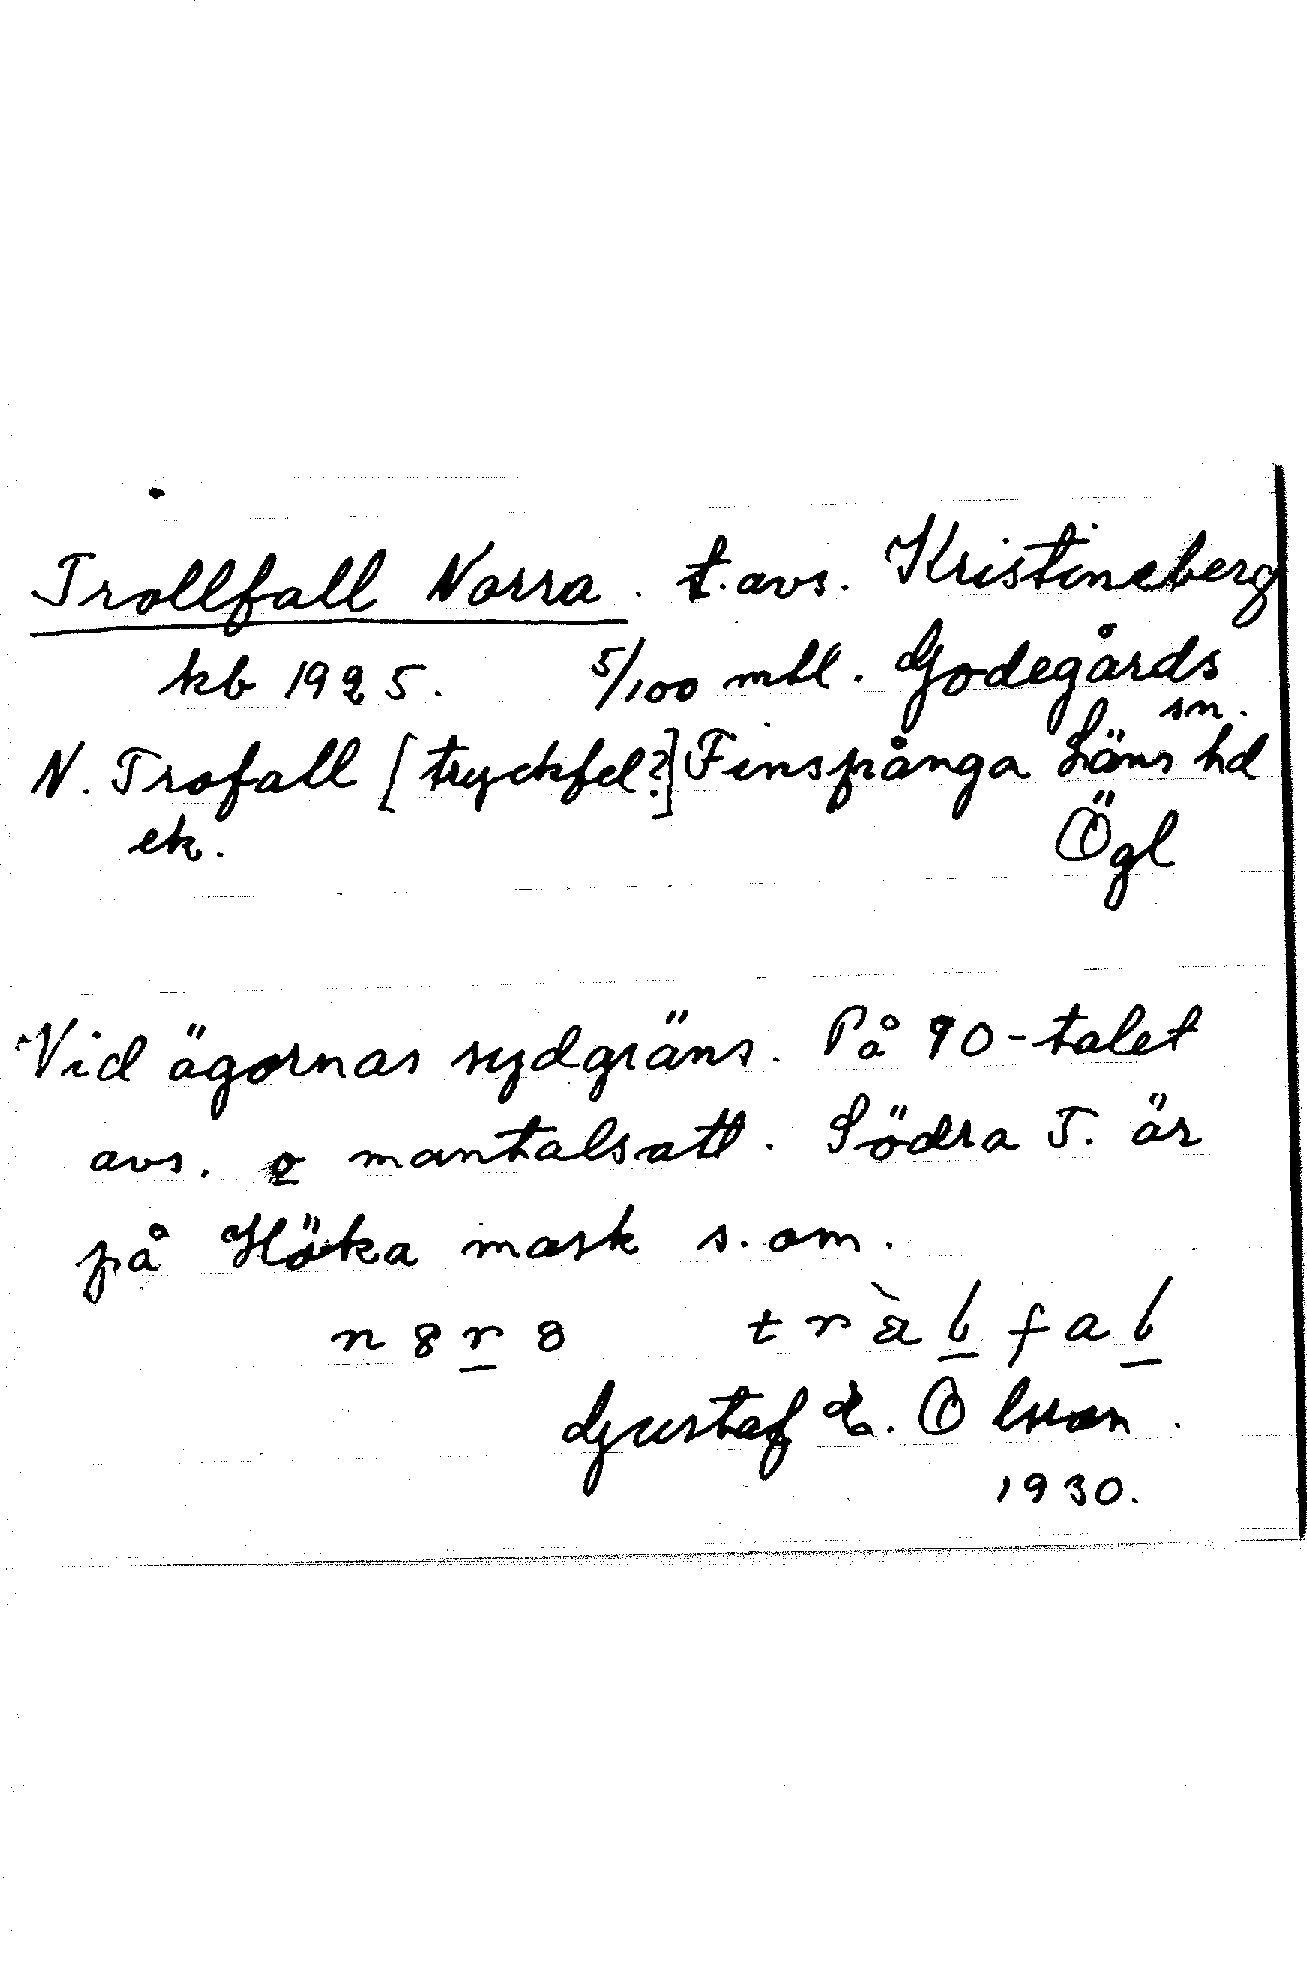 Trollfall Norra. t. avs. Kristineberg
kb 1925. 5/100 mtl. Godegårds
sn.
N. Trofall [tryckfel?] Finspånga Läns hd
ek. Ögl
Vid ägornas sydgräns. På 90-talet
avs. o mantalsatt. Södra T. är
på Höka mark s. om.
n 8 r 8 t r à l f a l
Gustaf E. Olsson.
1930.